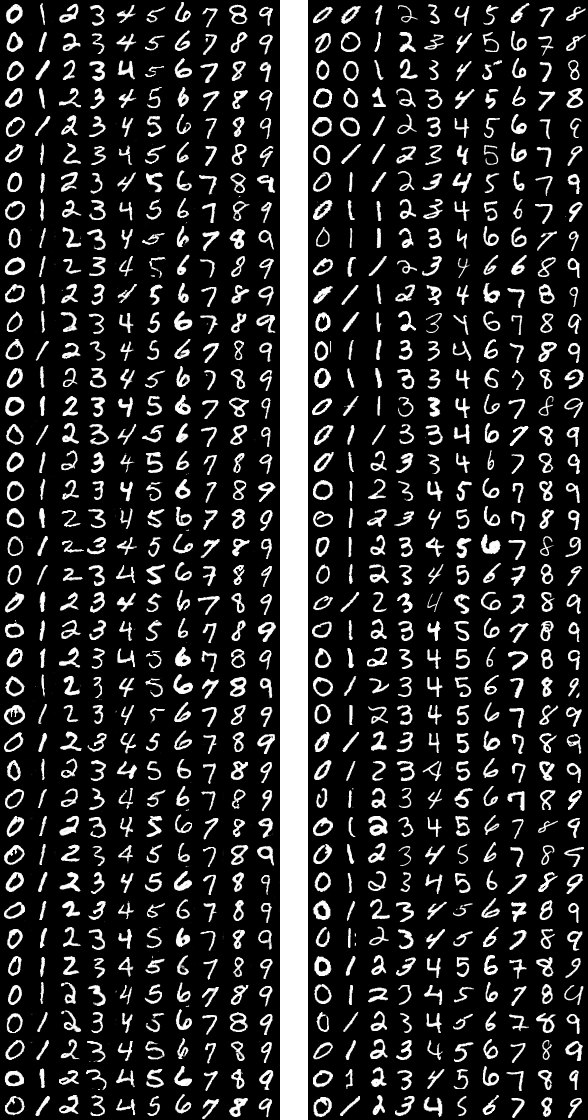 0 1 2 3 4 5 6 7 8 9
0 1 2 3 4 5 6 7 8 9
0 1 2 3 4 5 6 7 8 9
0 1 2 3 4 5 6 7 8 9
0 1 2 3 4 5 6 7 8 9
0 1 2 3 4 5 6 7 8 9
0 1 2 3 4 5 6 7 8 9
0 1 2 3 4 5 6 7 8 9
0 1 2 3 4 5 6 7 8 9
0 1 2 3 4 5 6 7 8 9
0 1 2 3 4 5 6 7 8 9
0 1 2 3 4 5 6 7 8 9
0 1 2 3 4 5 6 7 8 9
0 1 2 3 4 5 6 7 8 9
0 1 2 3 4 5 6 7 8 9
0 1 2 3 4 5 6 7 8 9
0 1 2 3 4 5 6 7 8 9
0 1 2 3 4 5 6 7 8 9
0 1 2 3 4 5 6 7 8 9
0 1 2 3 4 5 6 7 8 9
0 1 2 3 4 5 6 7 8 9
0 1 2 3 4 5 6 7 8 9
0 1 2 3 4 5 6 7 8 9
0 1 2 3 4 5 6 7 8 9
0 1 2 3 4 5 6 7 8 9
0 1 2 3 4 5 6 7 8 9
0 1 2 3 4 5 6 7 8 9
0 1 2 3 4 5 6 7 8 9
0 1 2 3 4 5 6 7 8 9
0 1 2 3 4 5 6 7 8 9
0 1 2 3 4 5 6 7 8 9
0 1 2 3 4 5 6 7 8 9
0 1 2 3 4 5 6 7 8 9
0 1 2 3 4 5 6 7 8 9
0 1 2 3 4 5 6 7 8 9
0 1 2 3 4 5 6 7 8 9
0 1 2 3 4 5 6 7 8 9
0 1 2 3 4 5 6 7 8 9
0 1 2 3 4 5 6 7 8 9
0 1 2 3 4 5 6 7 8 9
0 0 1 2 3 4 5 6 7 8
0 0 1 2 3 4 5 6 7 8
0 0 1 2 3 4 5 6 7 8
0 0 1 2 3 4 5 6 7 8
0 0 1 2 3 4 5 6 7 8
0 1 1 2 3 4 5 6 7 9
0 1 1 2 3 4 5 6 7 9
0 1 1 2 3 4 5 6 7 9
0 1 1 2 3 4 6 6 7 9
0 1 1 2 3 4 6 6 8 9
0 1 1 2 3 4 6 7 8 9
0 1 1 2 3 4 6 7 8 9
0 1 1 3 3 4 6 7 8 9
0 1 1 3 3 4 6 7 8 9
0 1 1 3 3 4 6 7 8 9
0 1 1 3 3 4 6 7 8 9
0 1 2 3 3 4 6 7 8 9
0 1 2 3 4 5 6 7 8 9
0 1 2 3 4 5 6 7 8 9
0 1 2 3 4 5 6 7 8 9
0 1 2 3 4 5 6 7 8 9
0 1 2 3 4 5 6 7 8 9
0 1 2 3 4 5 6 7 8 9
0 1 2 3 4 5 6 7 8 9
0 1 2 3 4 5 6 7 8 9
0 1 2 3 4 5 6 7 8 9
0 1 2 3 4 5 6 7 8 9
0 1 2 3 4 5 6 7 8 9
0 1 2 3 4 5 6 7 8 9
0 1 2 3 4 5 6 7 8 9
0 1 2 3 4 5 6 7 8 9
0 1 2 3 4 5 6 7 8 9
0 1 2 3 4 5 6 7 8 9
0 1 2 3 4 5 6 7 8 9
0 1 2 3 4 5 6 7 8 9
0 1 2 3 4 5 6 7 8 9
0 1 2 3 4 5 6 7 8 9
0 1 2 3 4 5 6 7 8 9
0 1 2 3 4 5 6 7 8 9
0 1 2 3 4 5 6 7 8 9